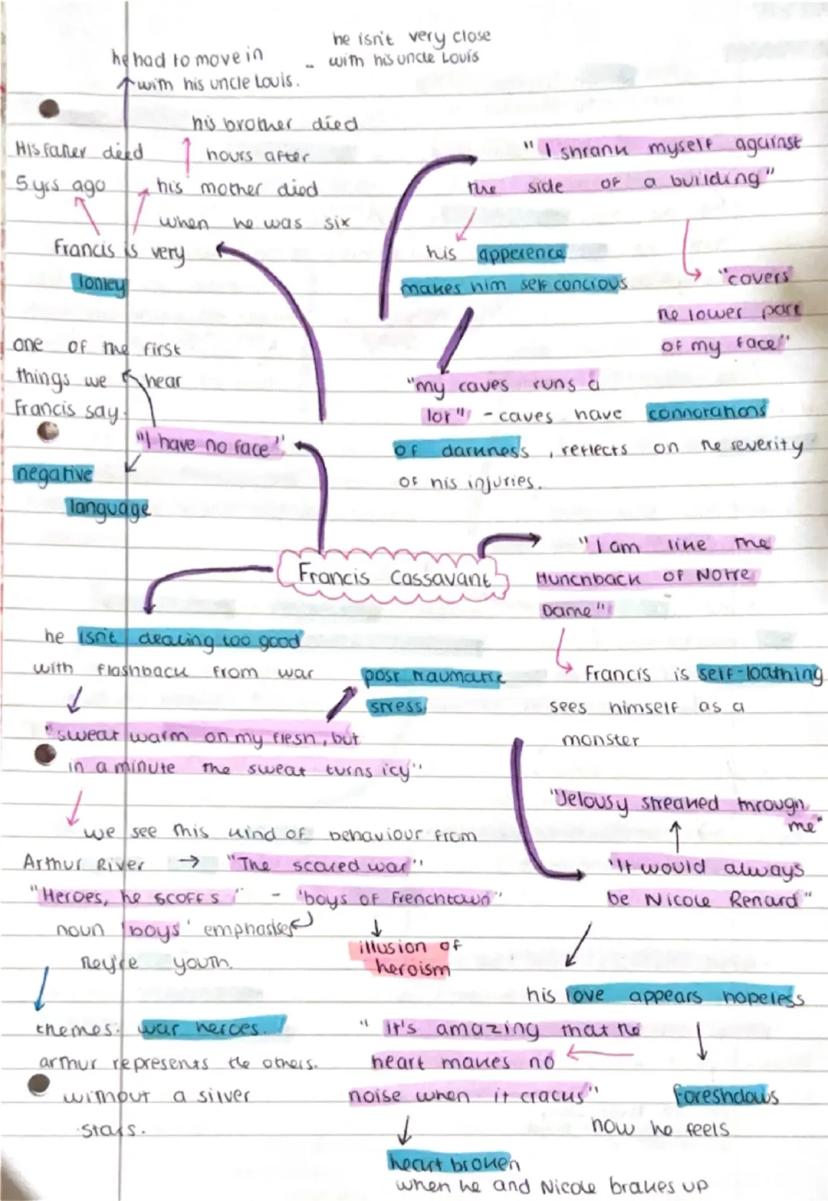 he had to move in
with his uncle Louis.
- he isn't very close
with his uncle Louis
his brother died
hours after
His father died
5 yrs ago
his mother died
when he was six
Francis is very
lonley
"I shrank myself against
the side of a building"
his apperence
makes him self concious
"covers
the lower part
of my face"
"my caves runs a
lot" - caves have connotations
of darkness, reflects on the severity
of his injuries.
one of the first
things we hear
Francis say.
"I have no face"
negative
language
Francis Cassavant
"I am like the
Hunchback of Notre
Dame"
Francis is self-loathing
sees himself as a
monster
he isn't dealing too good
with flashback from war
post traumatic
stress
"sweat warm on my flesh, but
in a minute the sweat turns icy"
we see this kind of behaviour from
Arthur River → "The scared war"
"Heroes, he scoffs" - 'boys of Frenchtown"
noun 'boys' emphasises
they're youth.
illusion of
heroism
"Jelousy streaked through
me"
"It would always
be Nicole Renard"
his love appears hopeless
foreshdows
how he feels
"it's amazing that the
heart makes no
noise when it cracks"
heart broken
when he and Nicole brakes up
themes: war heroes.
arthur represents the others.
without a silver
stars.